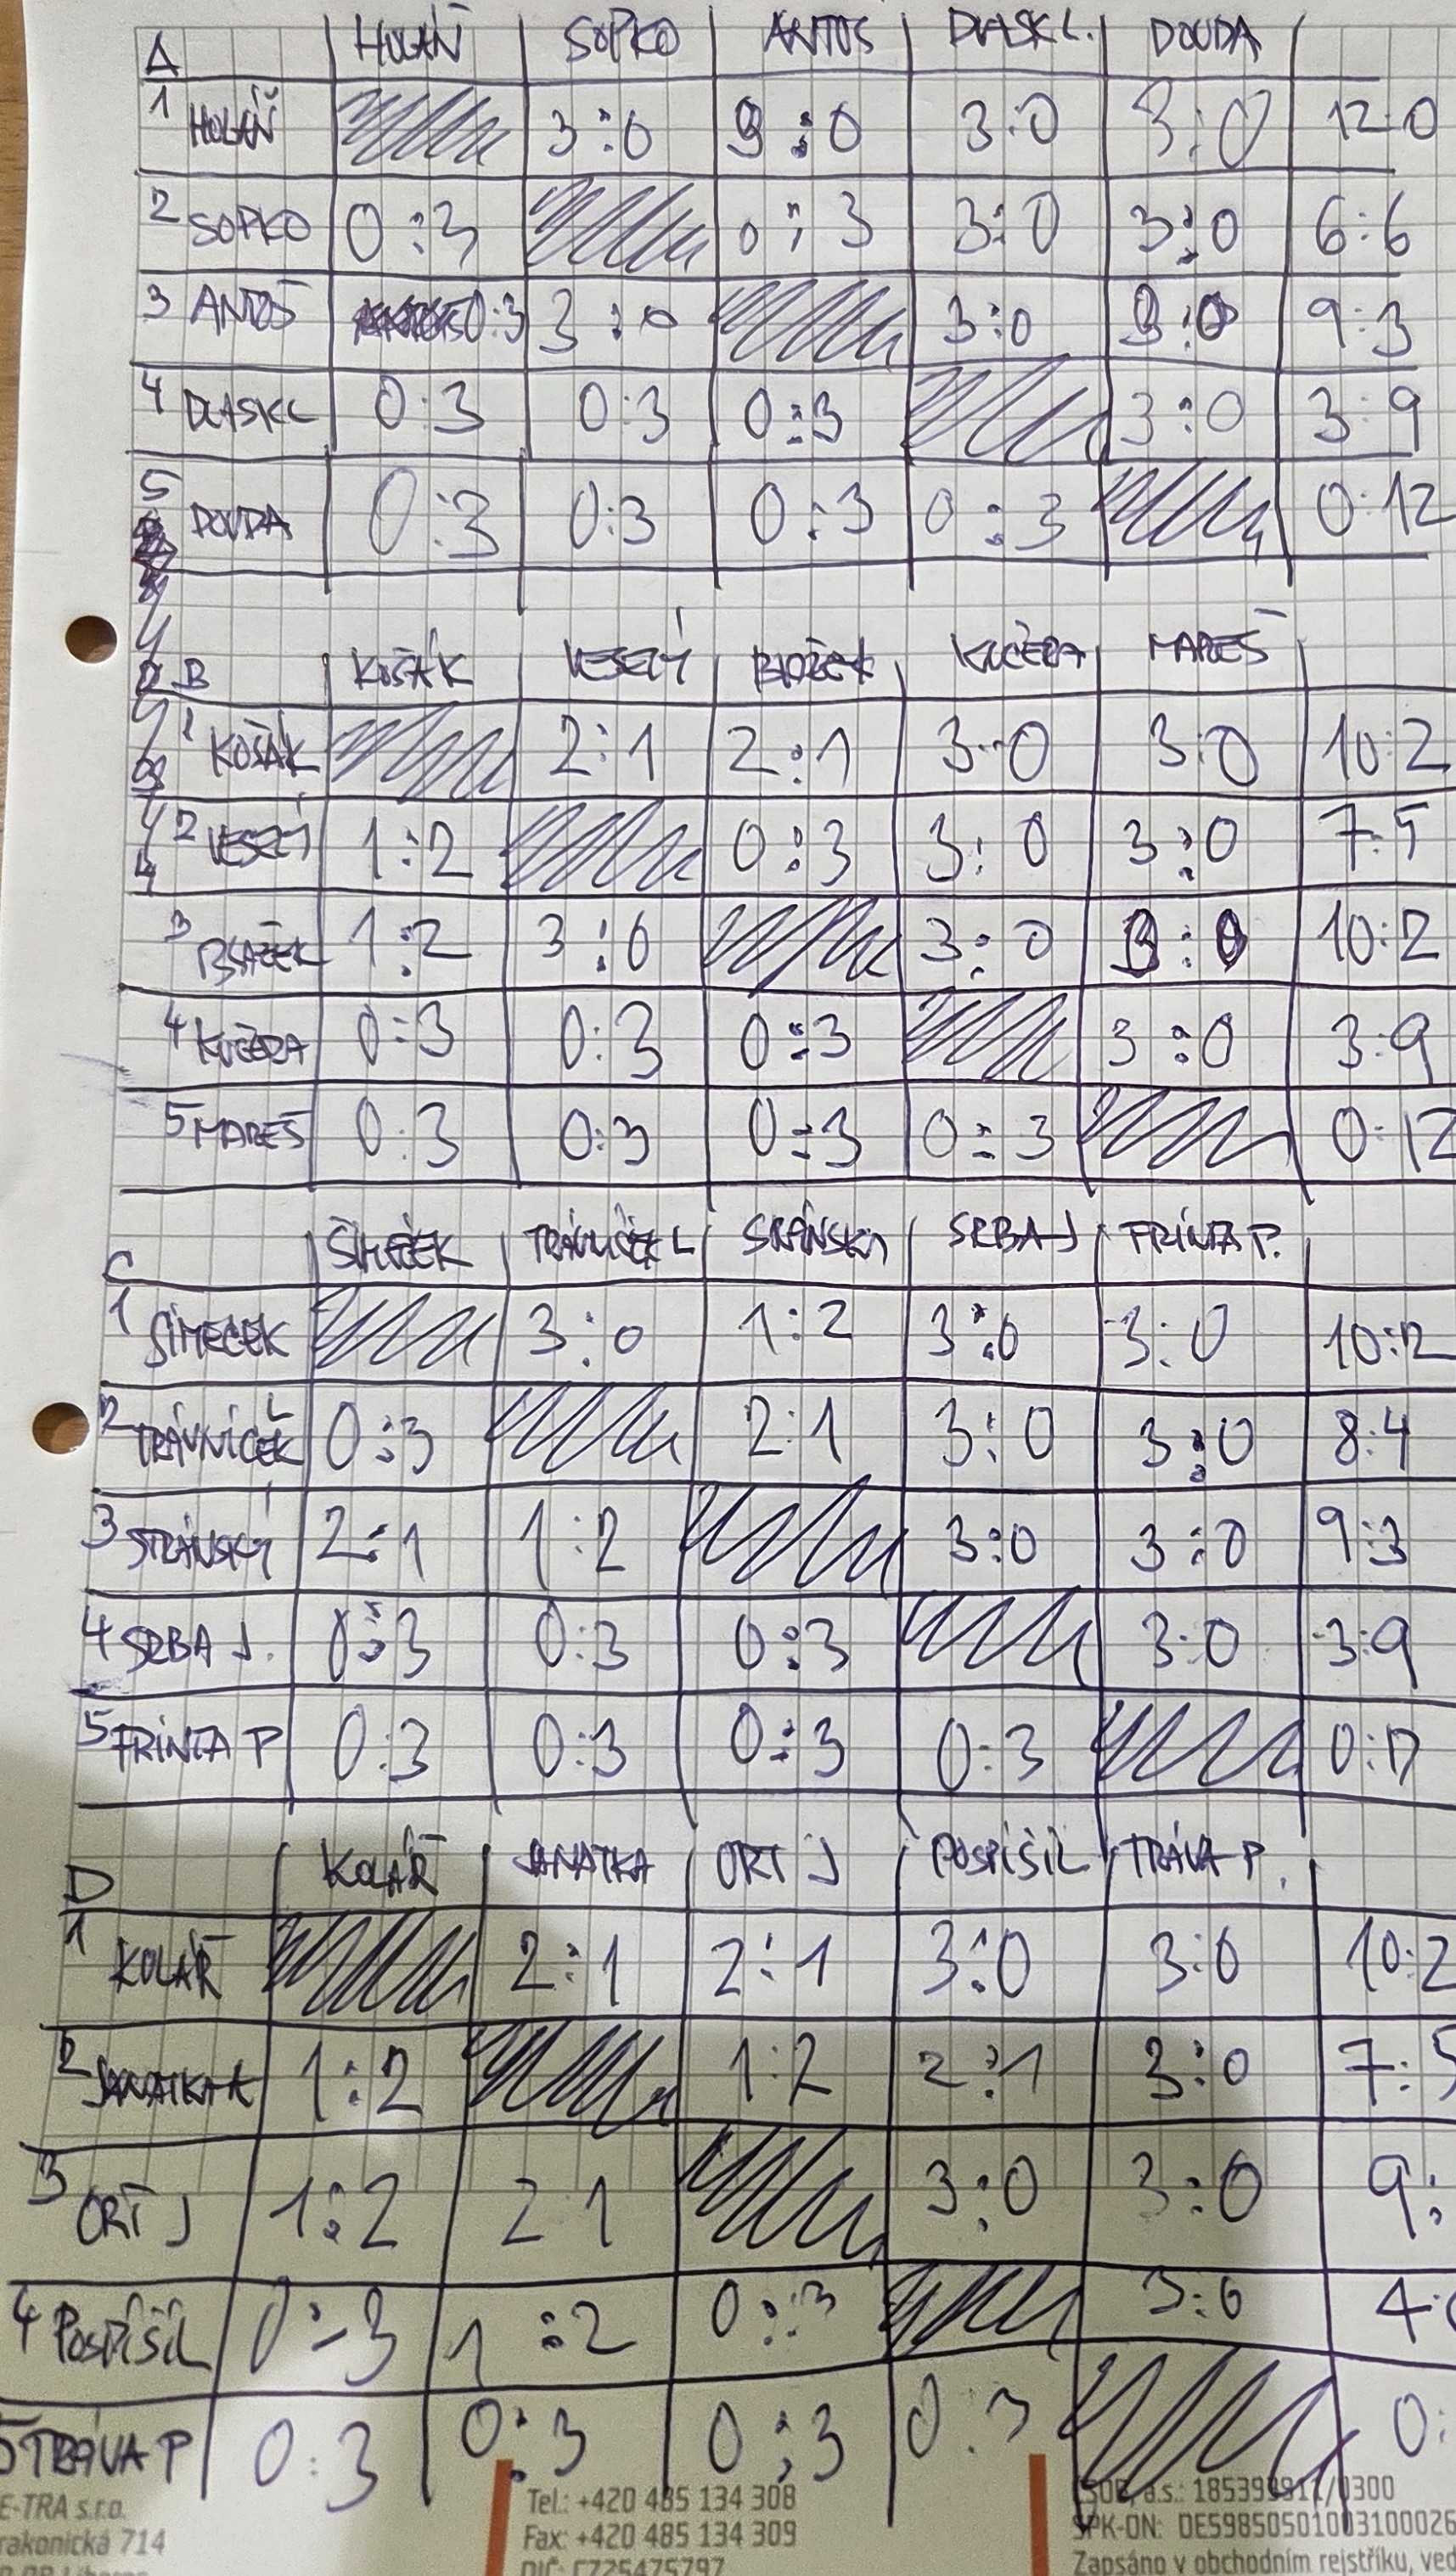 A HOLÁŇ SOPKO ANTOŠ DLASK L. DOUDA
1 HOLÁŇ 3:0 3:0 3:0 3:0 12:0
2 SOPKO 0:3 0:3 3:0 3:0 6:6
3 ANTOŠ 0:3 3:0 3:0 3:0 9:3
4 DLASK L 0:3 0:3 0:3 3:0 3:9
5 DOUDA 0:3 0:3 0:3 0:3 0:12
B KOŠÁK VESELÝ BLAŽEK KUČERA MAREŠ
1 KOŠÁK 2:1 2:1 3:0 3:0 10:2
2 VESELÝ 1:2 0:3 3:0 3:0 7:5
3 BLAŽEK 1:2 3:0 3:0 3:0 10:2
4 KUČERA 0:3 0:3 0:3 3:0 3:9
5 MAREŠ 0:3 0:3 0:3 0:3 0:12
C ŠIMEČEK TRÁVNÍČEK L STRÁNSKÝ SRBA J FRINTA P.
1 ŠIMEČEK 3:0 1:2 3:0 3:0 10:2
2 TRÁVNÍČEK L 0:3 2:1 3:0 3:0 8:4
3 STRÁNSKÝ 2:1 1:2 3:0 3:0 9:3
4 SRBA J. 0:3 0:3 0:3 3:0 3:9
5 FRINTA P 0:3 0:3 0:3 0:3 0:12
D KOLÁŘ JANATKA ORT J POSPÍŠIL TRÁVA P.
1 KOLÁŘ 2:1 2:1 3:0 3:0 10:2
2 JANATKA 1:2 1:2 2:1 3:0 7:5
3 ORT J 1:2 2:1 3:0 3:0 9:
4 POSPÍŠIL 0:3 1:2 0:3 3:0 4:
5 TRÁVA P 0:3 0:3 0:3 0:3 0:
E-TRA s.r.o. Tel.: +420 485 134 308 ČSOB, a.s.: 185399911/0300
rakonická 714 Fax: +420 485 134 309 SPK-ON: DE59850501003100026
DIČ: CZ25475797 Zapsáno v obchodním rejstříku, ved